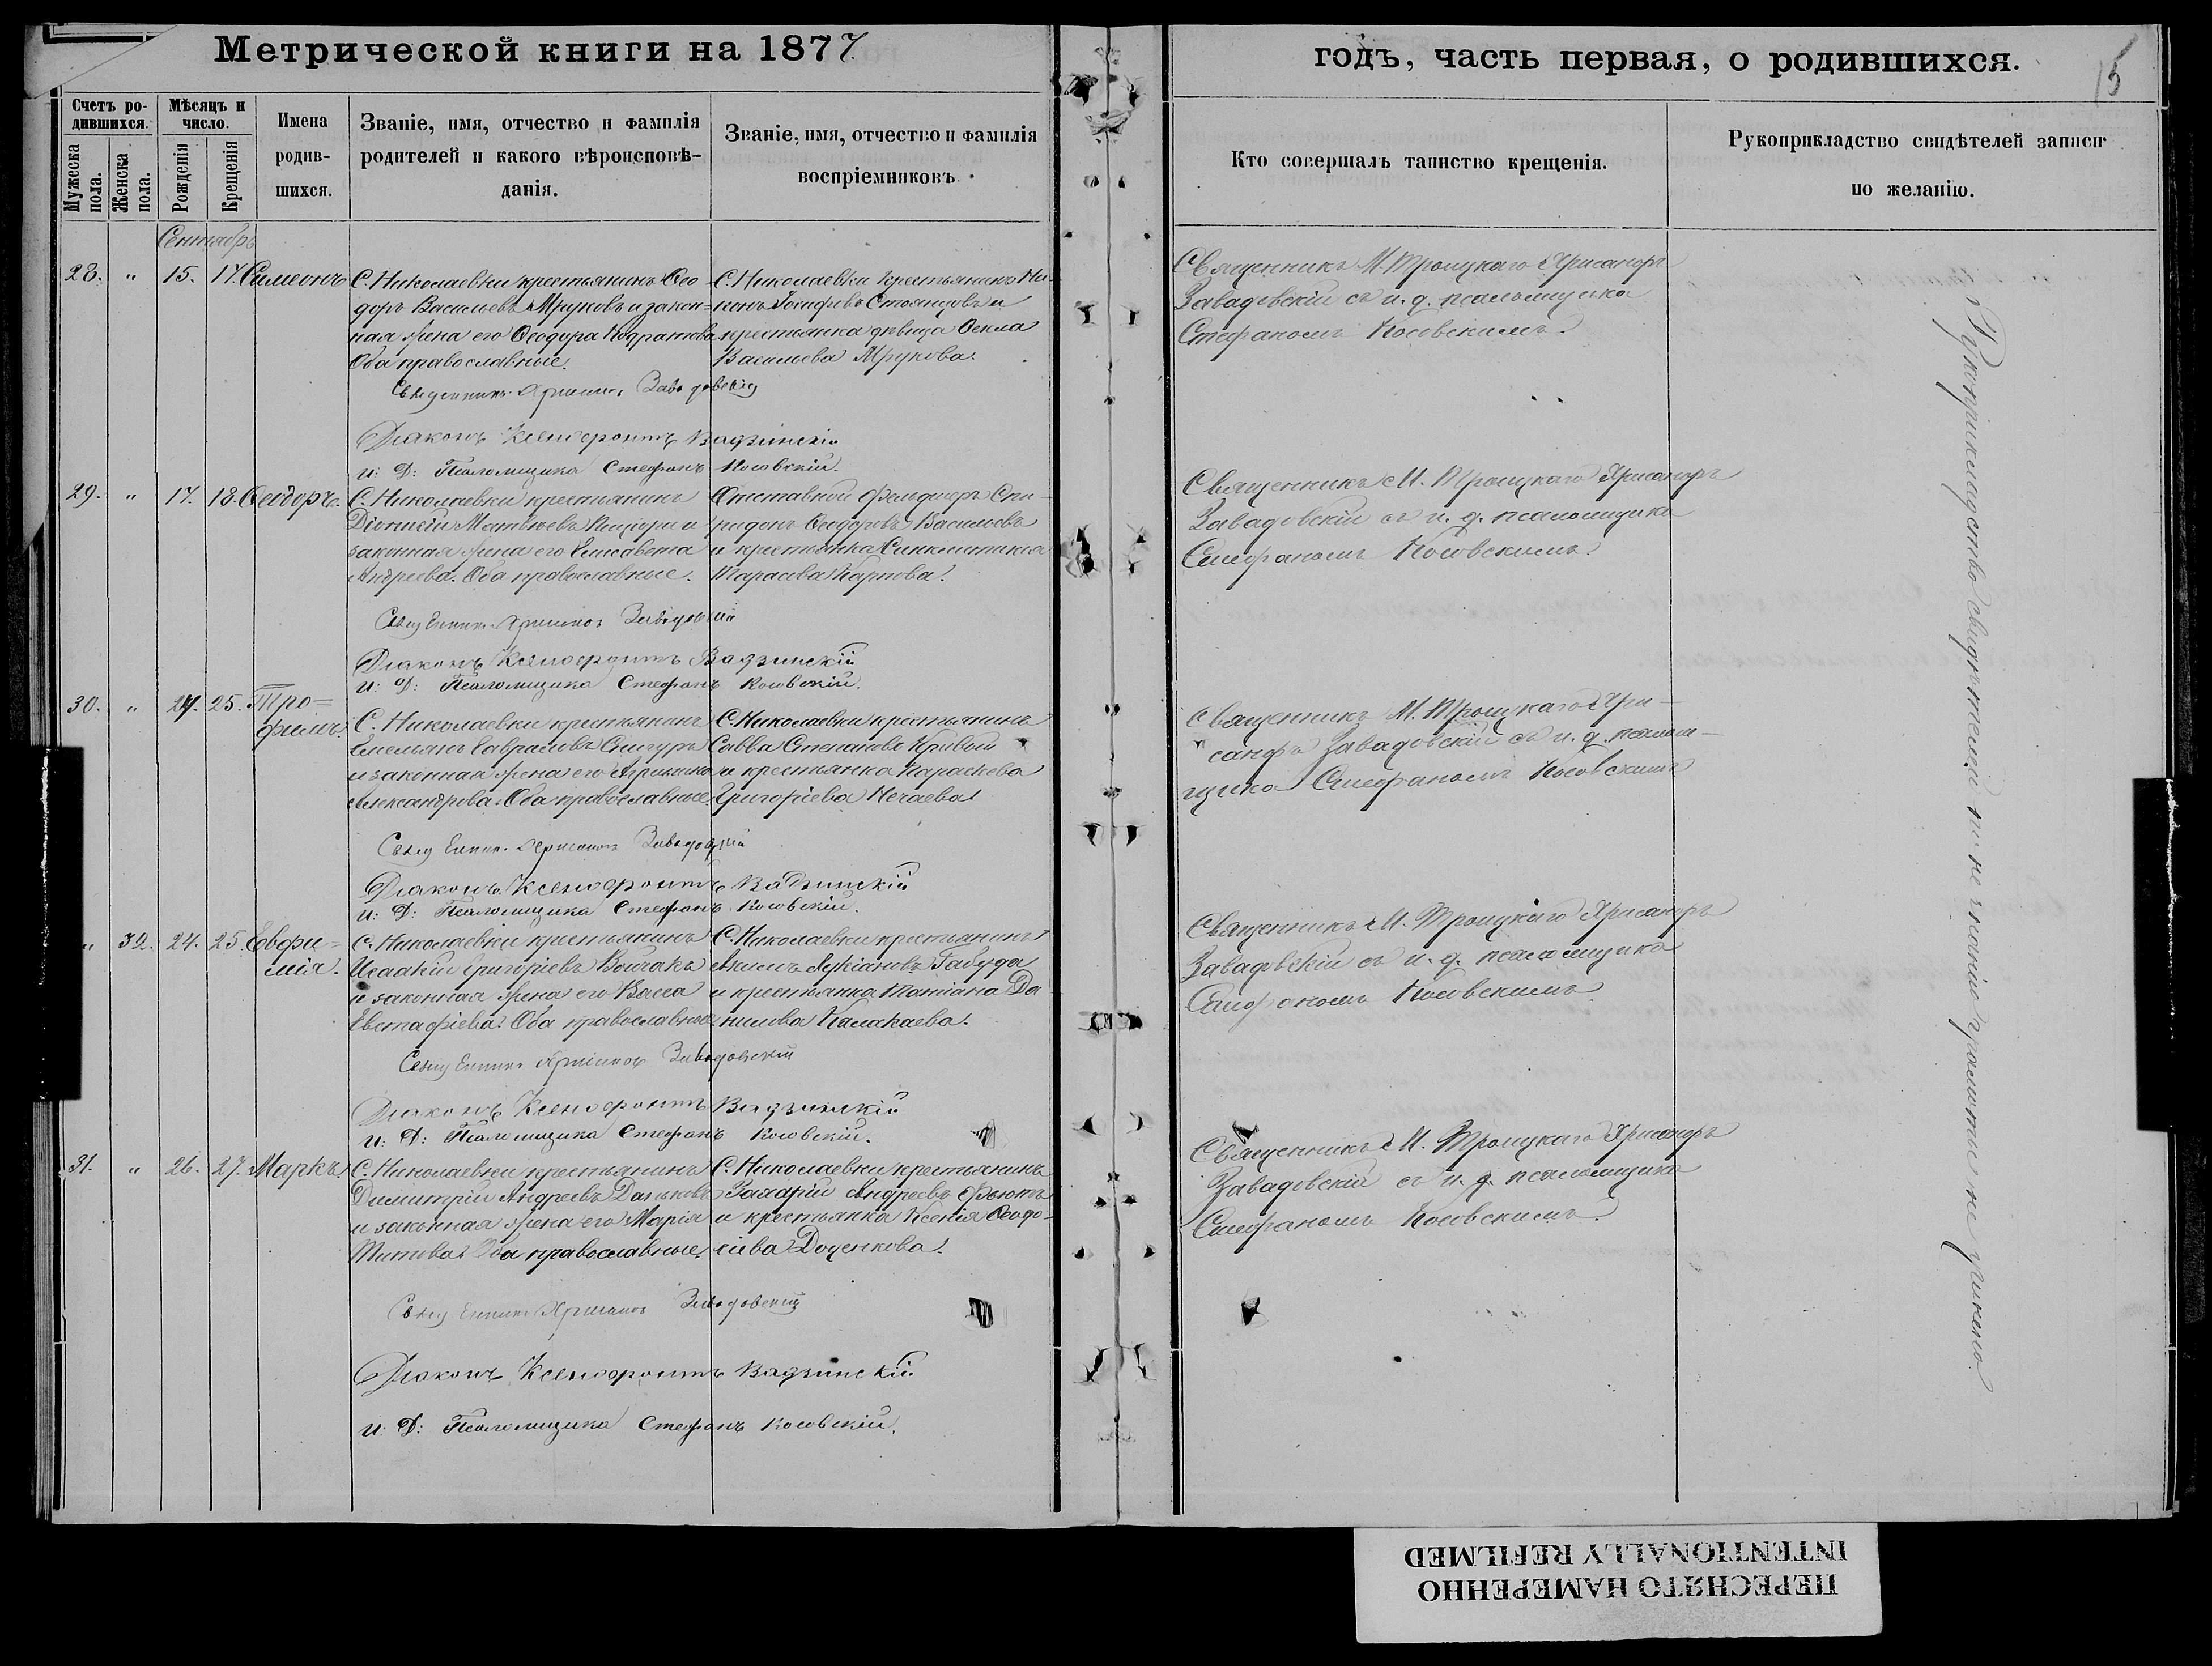 Метрической книги на 1877
годъ, часть первая, о родившихся.
15
Счетъ ро-
дившихся.
Мужеска
пола.
Женска
пола.
Мѣсяцъ и
число.
Рожденія
Крещенія
Имена
родив-
шихся.
Званіе, имя, отчество и фамилія
родителей и какого вѣроисповѣ-
данія.
Званіе, имя, отчество и фамилія
воспріемниковъ.
Кто совершалъ таинство крещенія.
Рукоприкладство свидѣтелей записи
по желанію.
Сентябрь
28. " 15. 17. Симеонъ
С. Николаевки крестьянинъ Ѳео
доръ Васильевъ Мруковъ и закон=
ная жена его Ѳеодора Кодратова
Оба православные.
С. Николаевки крестьянинъ Ни-
конъ Стоянцовъ и
крестьянка дѣвица Ѳекла
Васильева Мрукова.
Священникъ М. Троицкаго Хрисанфъ
Завадовскій съ и. д. псаломщика
Стефаномъ Косовскимъ.
Священникъ Хрисанфъ Завадовскій
Діаконъ Ксенофонтъ Вадзинскій
и: Д: Псаломщика Стефанъ Косовскій.
29. " 17. 18. Ѳеодоръ.
С. Николаевки крестьянинъ
Діонисій Матвѣевъ и
законная жена его Елисавета
Андреева. Оба православные.
Отставной фельдшеръ Спи-
ридонъ Ѳеодоровъ Васильевъ
и крестьянка Синклитикія
Тарасева Карпова.
Священникъ М. Троицкаго Хрисанфъ
Завадовскій съ и. д. псаломщика
Стефаномъ Косовскимъ.
Священникъ Хрисанфъ Завадовскій
Діаконъ Ксенофонтъ Вадзинскій
и: Д: Псаломщика Стефанъ Косовскій.
30. " 24. 25. Тро=
фимъ.
С. Николаевки крестьянинъ
Емельянъ Савраловъ Снигуръ
и законная жена его
Александрова. Оба православные.
С. Николаевки крестьянинъ
Савва Степановъ Кривый
и крестьянка Параскева
Григоріева Нечаева.
Священникъ М. Троицкаго Хри-
санфъ Завадовскій съ и. д. псалом-
щика Стефаномъ Косовскимъ
Священникъ Хрисанфъ Завадовскій
Діаконъ Ксенофонтъ Вадзинскій
и: Д: Псаломщика Стефанъ Косовскій.
" 32. 24. 25. Евфи=
мія.
С. Николаевки крестьянинъ
Исаакій Григоріевъ Войчакъ
и законная жена его Васса
Евстафіева. Оба православные
С. Николаевки крестьянинъ
Акимъ Лукіановъ Габуда
и крестьянка Татіана Да
нилова Калакаева.
Священникъ М. Троицкаго Хрисанфъ
Завадовскій съ и. д. псаломщика
Стефаномъ Косовскимъ
Священникъ Хрисанфъ Завадовскій
Діаконъ Ксенофонтъ Вадзинскій
и: Д: Псаломщика Стефанъ Косовскій.
31. " 26. 27. Маркъ.
С. Николаевки крестьянинъ
Димитрій Андреевъ Даньковъ
и законная жена его Марія
Титова. Оба православные.
С. Николаевки крестьянинъ
Захарій Андреевъ
и крестьянка Ксенія Ѳеодо-
сіева Доценкова.
Священникъ М. Троицкаго Хрисанфъ
Завадовскій съ и. д. псаломщика
Стефаномъ Косовскимъ.
Священникъ Хрисанфъ Завадовскій
Діаконъ Ксенофонтъ Вадзинскій
и: Д: Псаломщика Стефанъ Косовскій.
Рукоприкладство свидѣтелей по незнанію грамоты не учинено.
ПЕРЕСНЯТО НАМЕРЕННО
INTENTIONALLY REFILMED